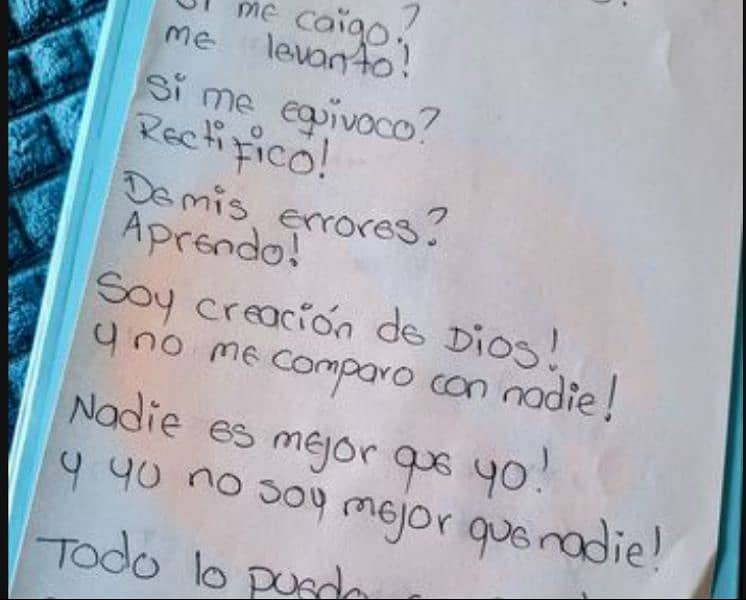 Si me caigo?
me levanto!
Si me equivoco?
Rectifico!
De mis errores?
Aprendo!
Soy creación de Dios!
y no me comparo con nadie!
Nadie es mejor que yo!
y yo no soy mejor que nadie!
Todo lo puedo